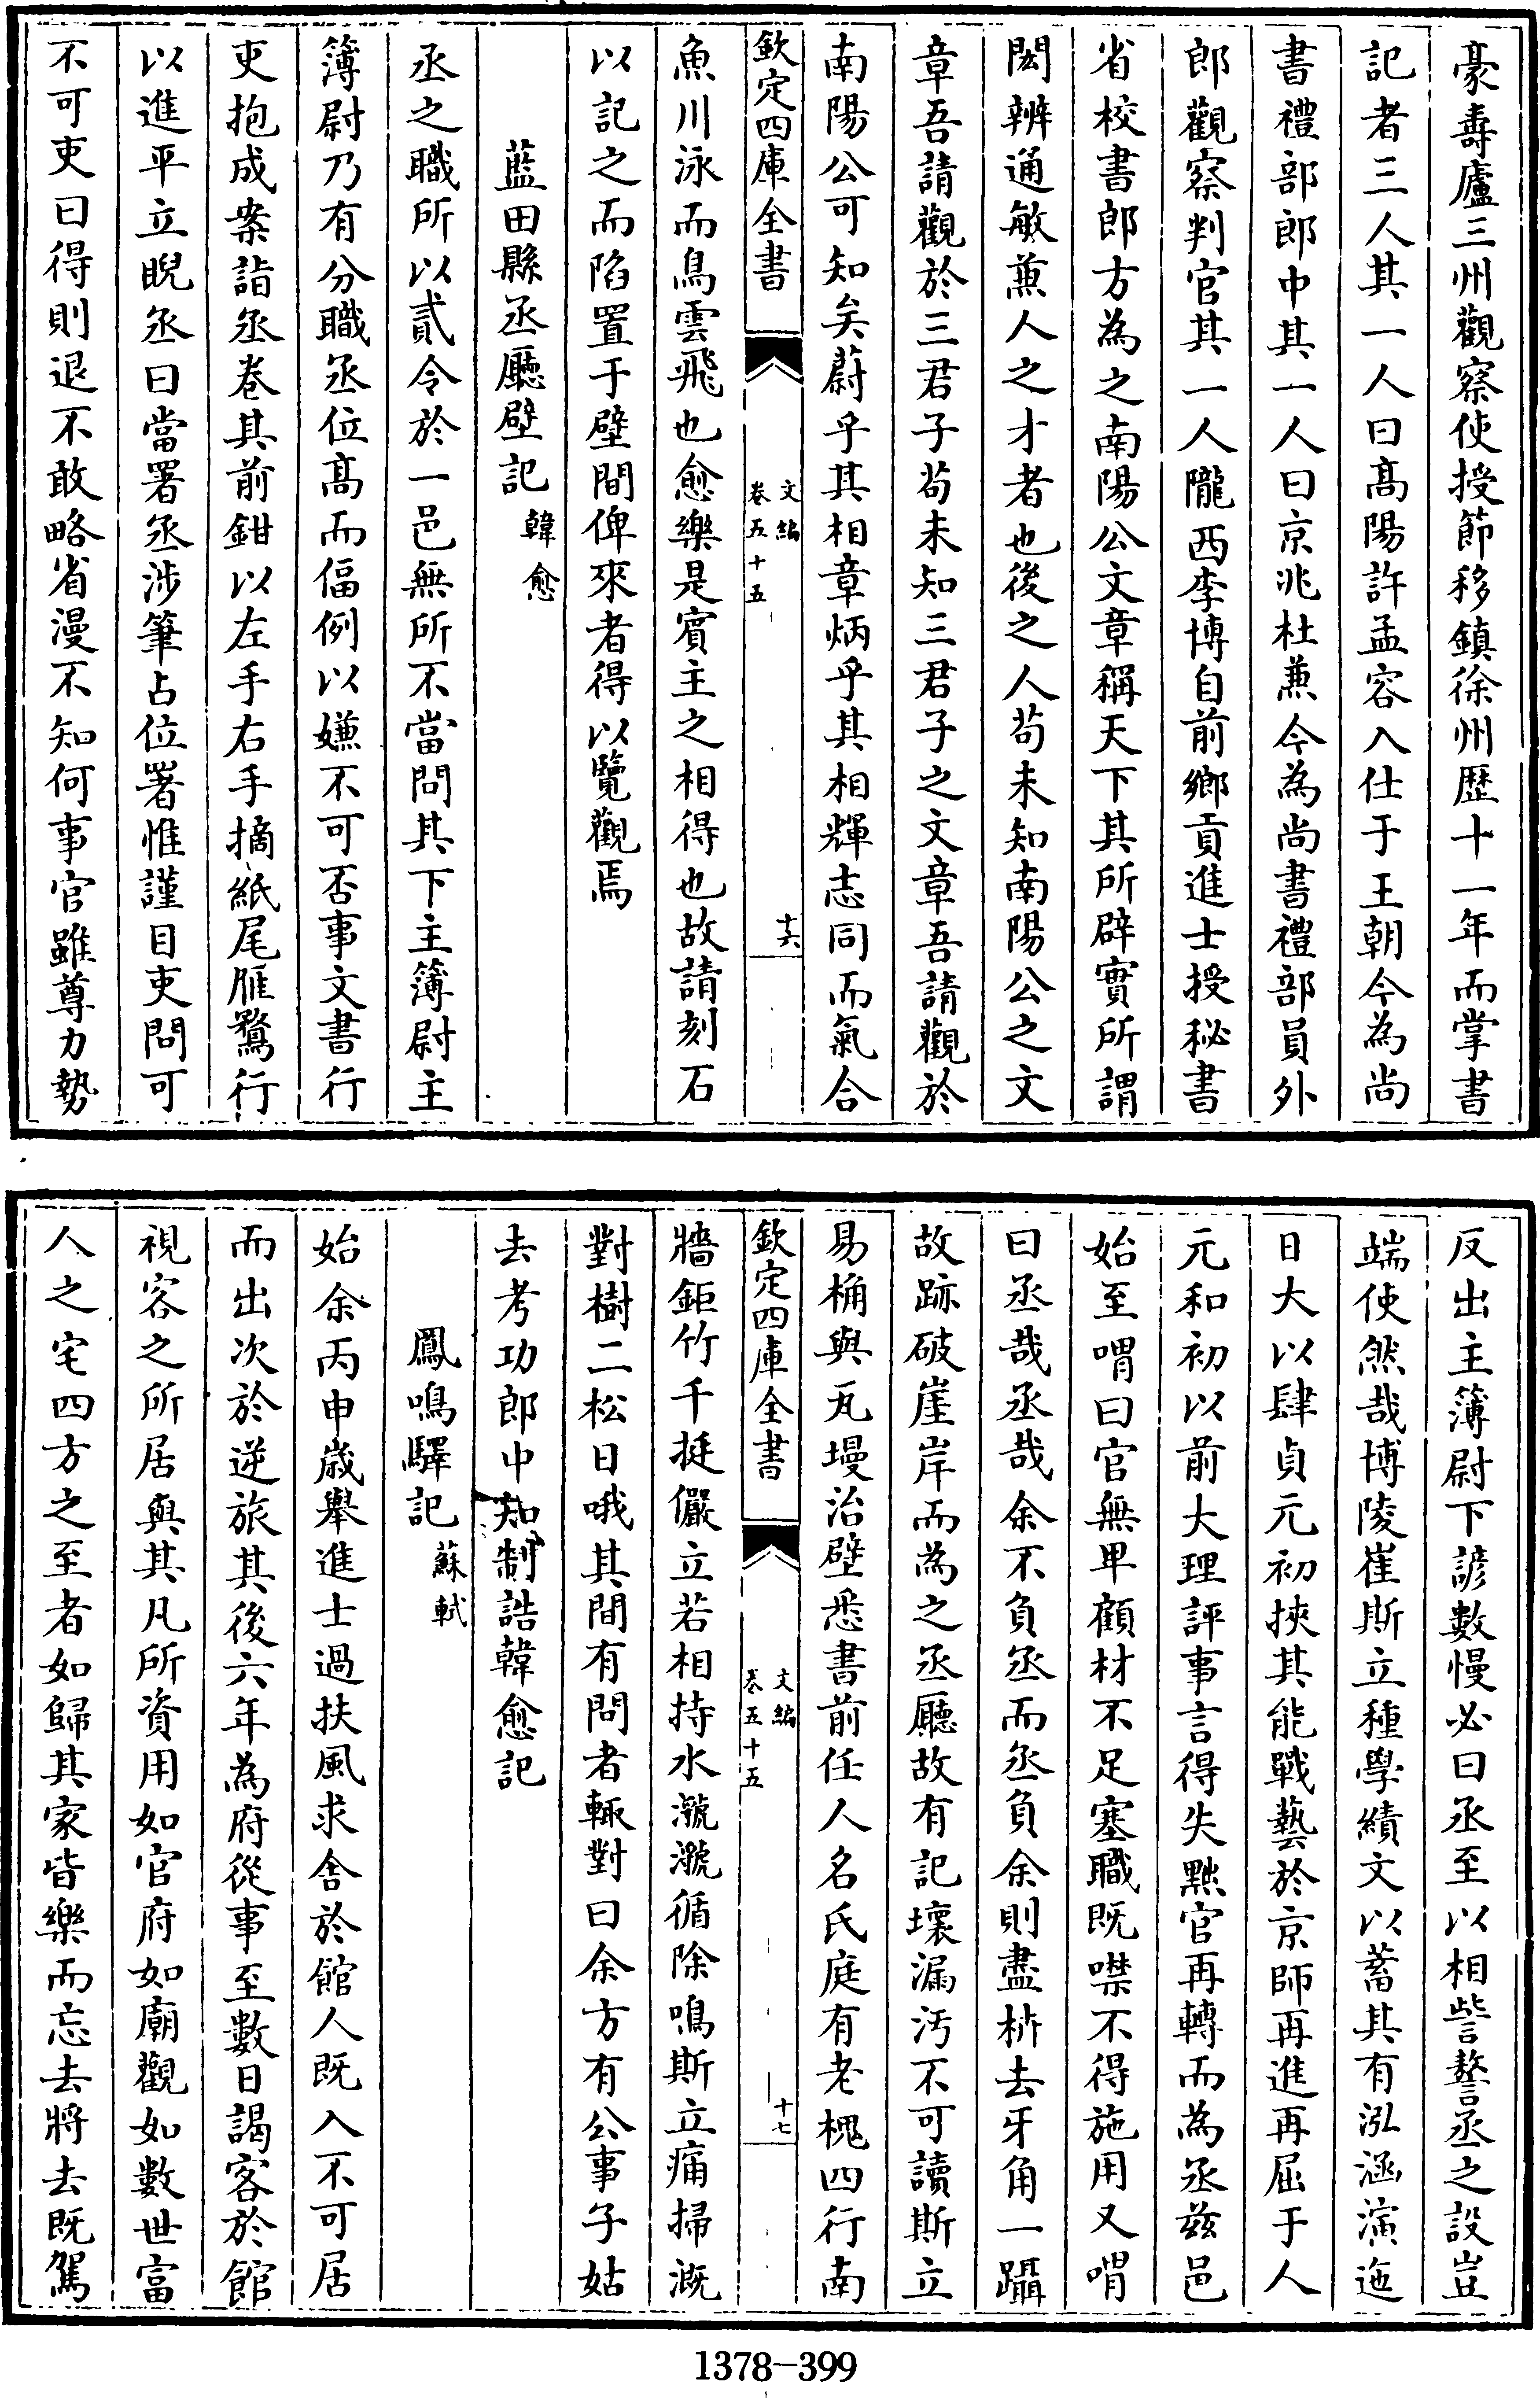 豪壽廬三州觀察使授節移鎮徐州歴十一年而掌書
記者三人其一人曰髙陽許孟容入仕于王朝今為尚
書禮部郎中其一人曰京兆杜兼今為尚書禮部員外
郎觀察判官其一人隴西李博自前鄉貢進士授秘書
省校書郎方為之南陽公文章稱天下其所辟實所謂
閎辨通敏兼人之才者也後之人苟未知南陽公之文
章吾請觀於三君子苟未知三君子之文章吾請觀於
南陽公可知矣蔚乎其相章炳乎其相輝志同而氣合
欽定四庫全書
文編
卷五十五
十六
魚川泳而鳥雲飛也愈樂是賔主之相得也故請刻石
以記之而陷置于壁間俾來者得以覽觀焉
藍田縣丞廳壁記 韓愈
丞之職所以貳令於一邑無所不當問其下主簿尉主
簿尉乃有分職丞位髙而偪例以嫌不可否事文書行
吏抱成案詣丞卷其前鉗以左手右手摘紙尾雁鶩行
以進平立睨丞曰當署丞涉筆占位署惟謹目吏問可
不可吏曰得則退不敢略省漫不知何事官雖尊力勢
反出主簿尉下諺數慢必曰丞至以相訾謷丞之設豈
端使然哉博陵崔斯立種學績文以蓄其有泓涵演迤
日大以肆貞元初挾其能戰藝於京師再進再屈于人
元和初以前大理評事言得失黜官再轉而為丞兹邑
始至喟曰官無卑顧材不足塞職既噤不得施用又喟
曰丞哉丞哉余不負丞而丞負余則盡枿去牙角一躡
故跡破崖岸而為之丞廳故有記壞漏汚不可讀斯立
易桷與瓦墁治壁悉書前任人名氏庭有老槐四行南
欽定四庫全書
文編
卷五十五
十七
牆鉅竹千挺儼立若相持水㶁㶁循除鳴斯立痛掃溉
對樹二松日哦其間有問者輒對曰余方有公事子姑
去考功郎中知制誥韓愈記
鳳鳴驛記 蘇軾
始余丙申歲舉進士過扶風求舎於館人既入不可居
而出次於逆旅其後六年為府從事至數日謁客於館
視客之所居與其凡所資用如官府如廟觀如數世富
人之宅四方之至者如歸其家皆樂而忘去將去既駕
1378-399